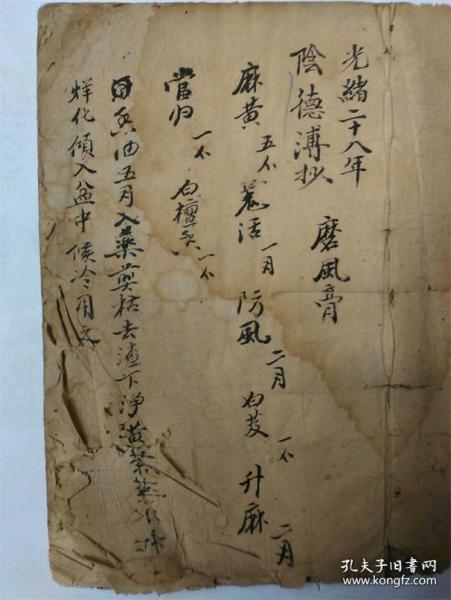 光緒二十八年
陰德溥抄 磨風膏
麻黄 五 羗活 一 防風 二 白芨 一 升麻 二
當归 一 白檀香 一
香油五 入藥煎枯去渣下净黄
烊化傾入盆中候冷用之
孔夫子旧书网
www.kongfz.com